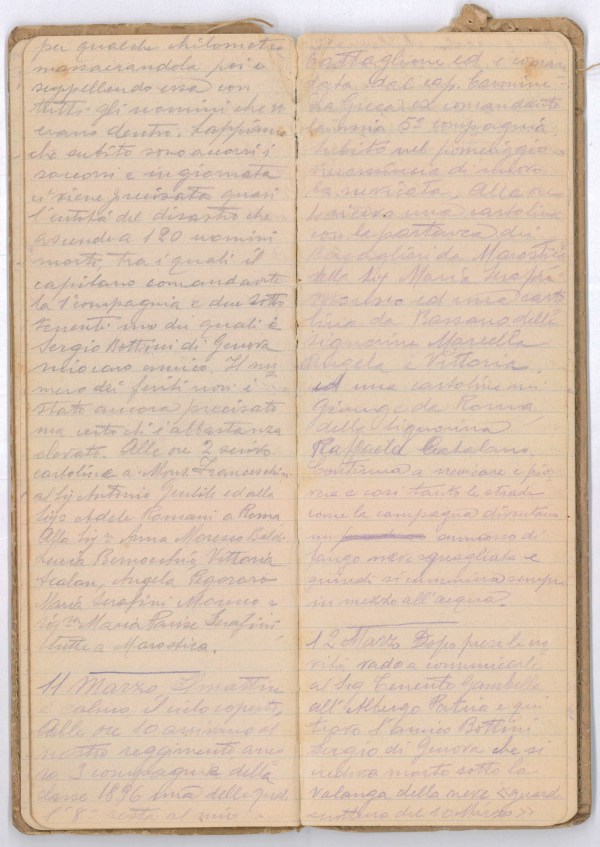 per qualche chilometro
massacrandola poi e
seppellendo essa con
tutti gli uomini che vi
erano dentro. Sappiamo
che subito sono accorsi i
soccorsi e in giornata
ci viene precisata quasi
l'entità del disastro che
ascende a 120 uomini
morti, tra i quali il
capitano comandante
la 1ª compagnia e due sotto
tenenti uno dei quali è
Sergio Bottini di Genova
mio caro amico. Il nu
mero dei feriti non è
stato ancora precisato
ma certo ch'è abbastanza
elevato. Alle ore 2 scrivo
cartoline a Mons. Franceschini
al Sig Antonio Gentile ed alla
Sig Adele Romani a Roma
Alla Sig.ra Anna Moresco
Lucia Bernocchio Vittoria
Scalon, Angela Pegoraro
Maria Serafini Moresco e
Sig.ra Maria Parise Serafini
tutte a Marostica.
11 Marzo. Stamattina
è calmo il cielo coperto,
Alle ore 10 arrivano al
nostro reggimento
3 compagnie della
classe 1896 una delle quali
l'8ª resta al mio
battaglione ed è coman
data dal cap. Carmine
ex comandante
la mia 5ª compagnia
Subito nel pomeriggio
ricomincia di nuovo
la nevicata. Alle ore
ricevo una cartolina
con la partenza dei
Bersaglieri da Marostica
della Sig Maria Serafini
Moresco ed una carto
lina da Bassano delle
Signorine Marcella
Angela e Vittoria.
ed una cartolina mi
giunge da Roma
della Signorina
Raffaela Catalano.
Continua a nevicare e pio
vere e così tanto le strade
come la campagna diventano
un ammasso di
fango neve squagliata e
quindi si cammina sempre
in mezzo all'acqua.
12 Marzo Dopo prese le no
vità vado a comunicarle
al Sig Tenente
all'Albergo Posta e qui
trovo l'amico Bottini
Sergio di Genova che si
credeva morto sotto la
valanga della neve
del 10 Marzo